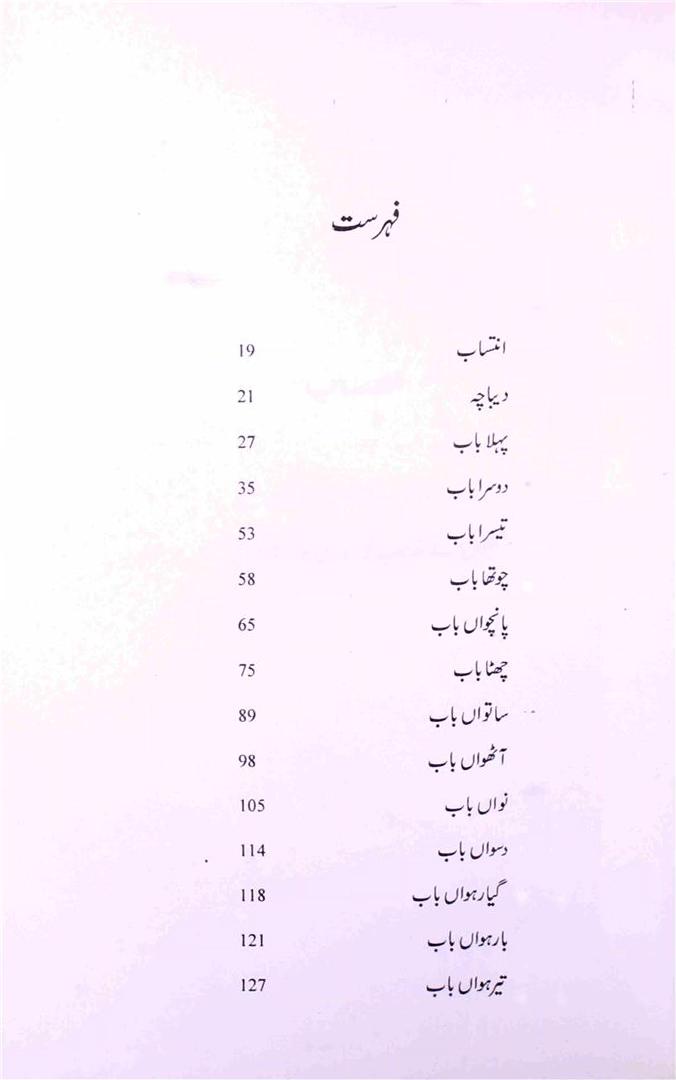 فہرست
انتساب 19
دیباچہ 21
پہلا باب 27
دوسرا باب 35
تیسرا باب 53
چوتھا باب 58
پانچواں باب 65
چھٹا باب 75
ساتواں باب 89
آٹھواں باب 98
نواں باب 105
دسواں باب 114
گیارہواں باب 118
بارہواں باب 121
تیرہواں باب 127